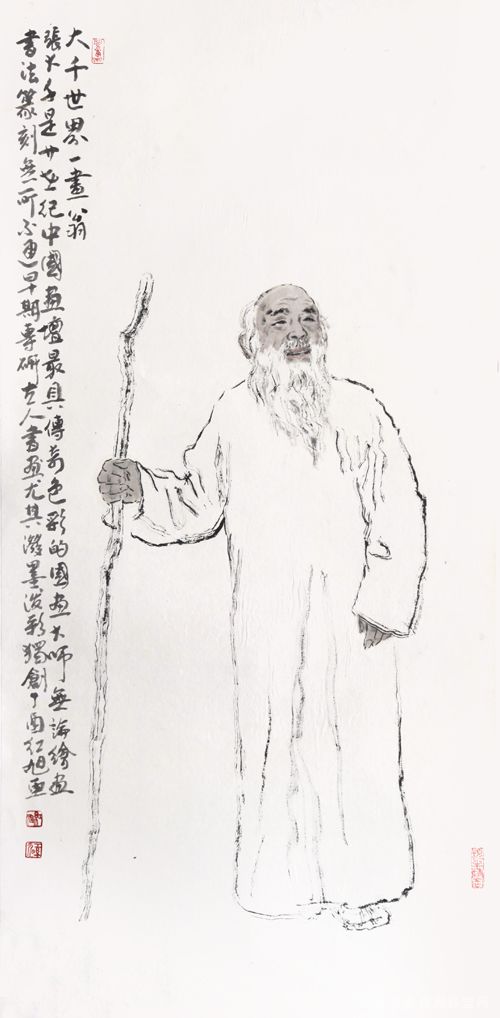 大千世界一畫翁
張大千是廿世紀中國畫壇最具傳奇色彩的國畫大師無論繪畫
書法篆刻無所不通早期專研古人書畫尤其潑墨潑彩獨創丁酉紅旭畫